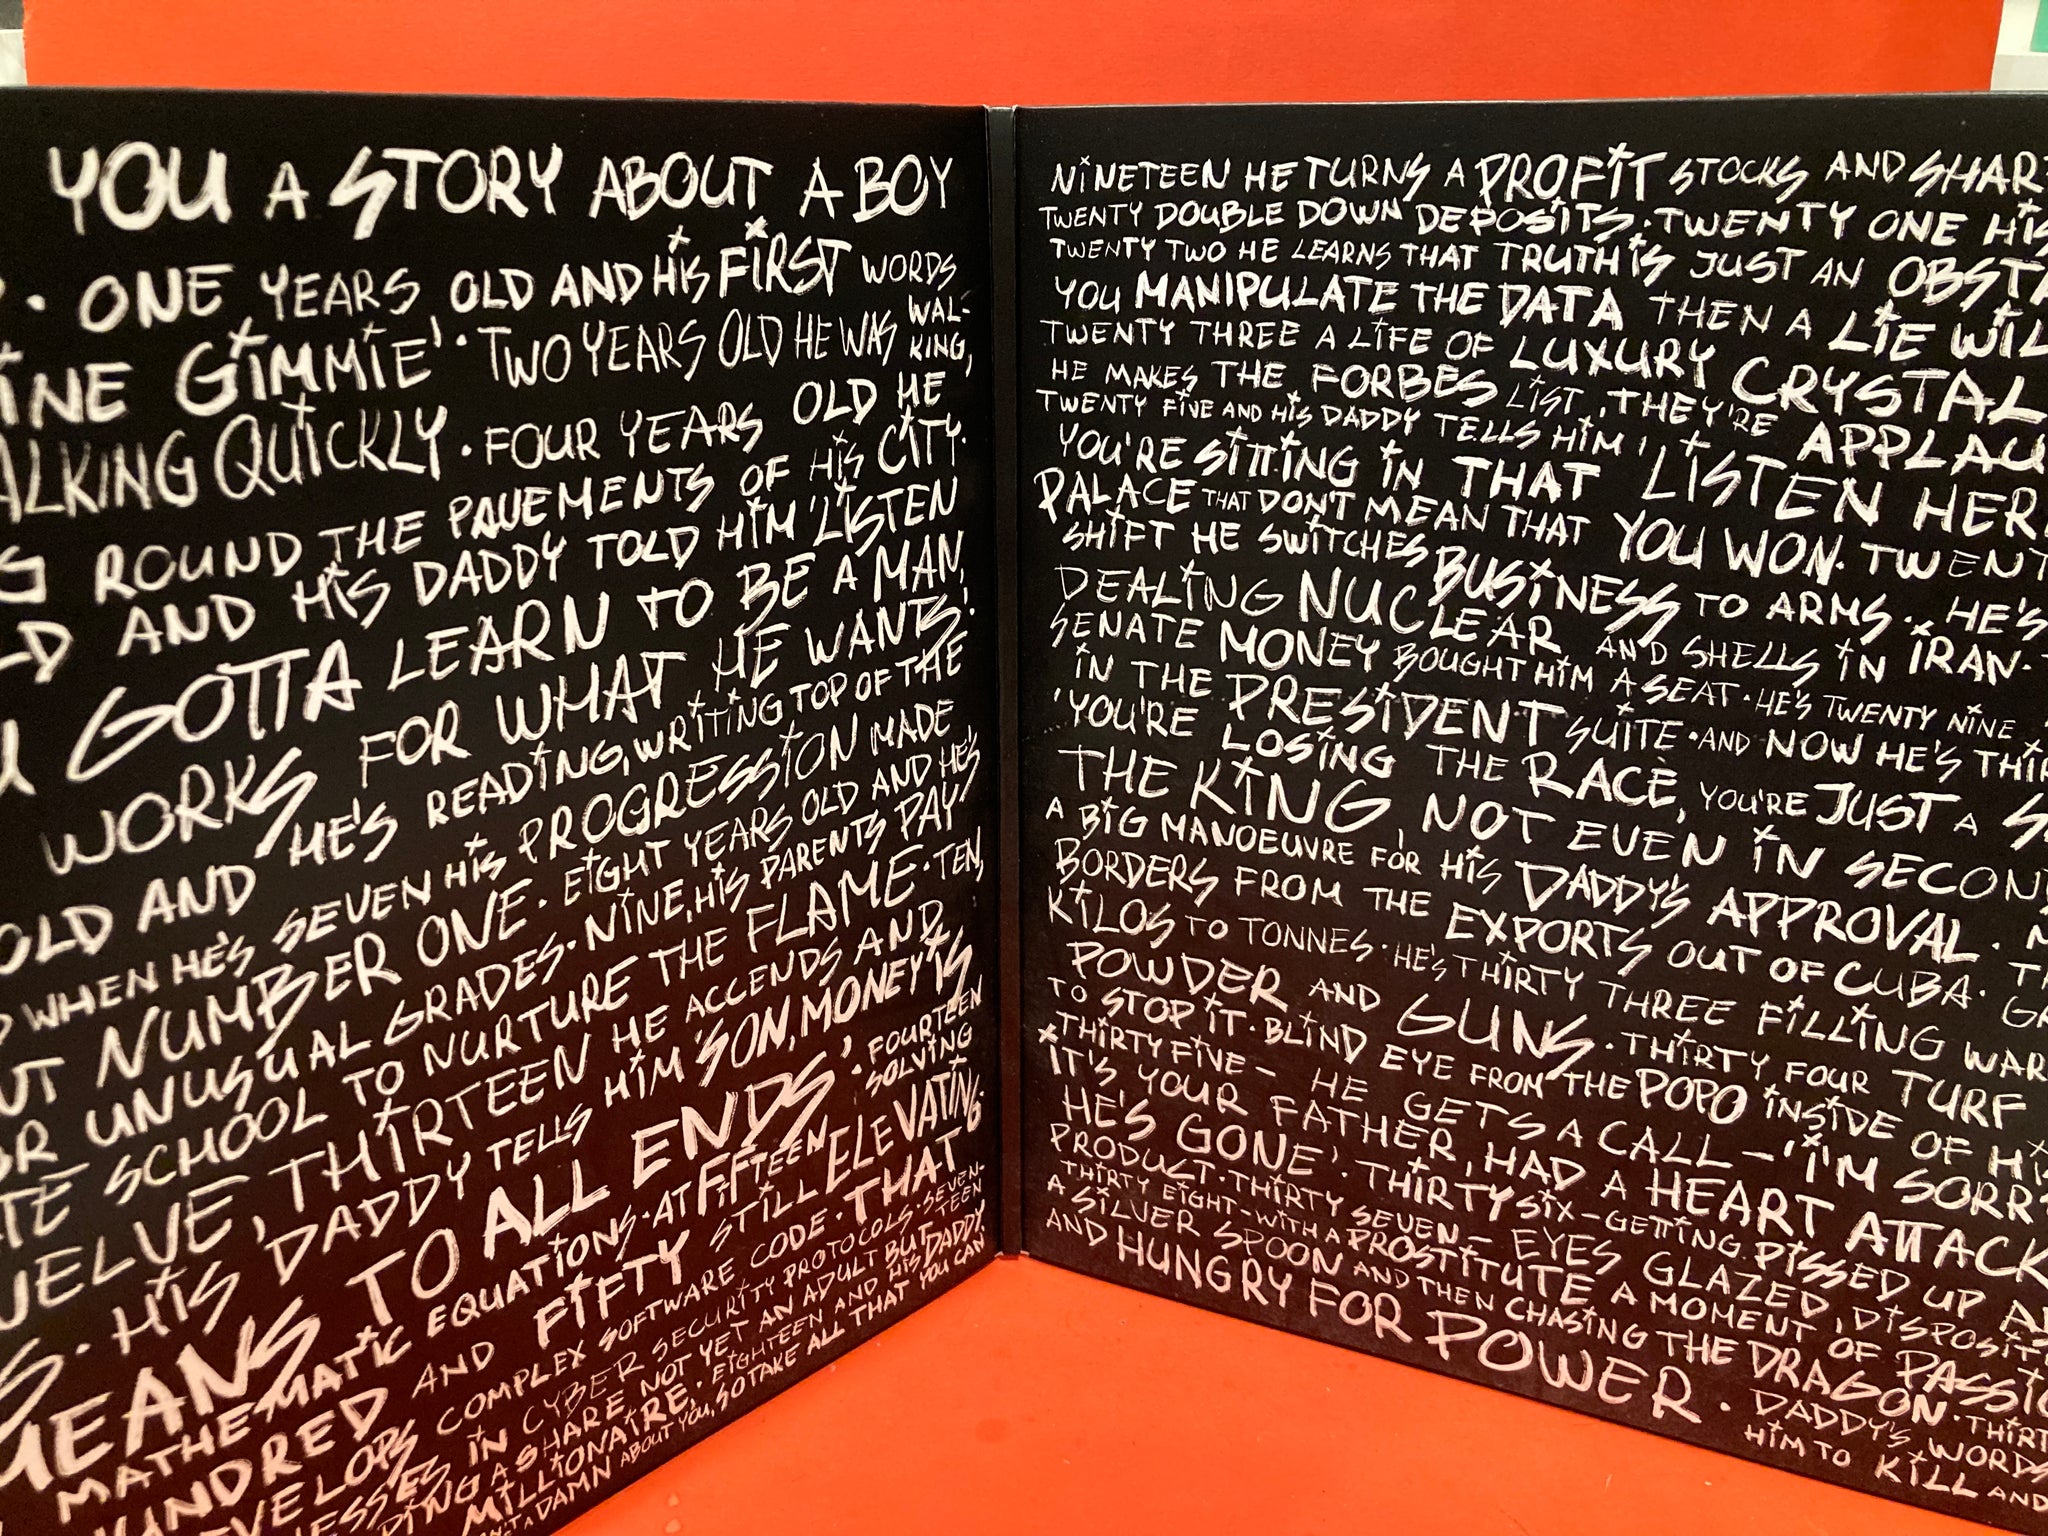 YOU A STORY ABOUT A BOY
· ONE YEARS OLD AND HIS FIRST WORDS
GIMMIE'· TWO YEARS OLD HE WAS WALKING,
QUICKLY · FOUR YEARS OLD HE
ROUND THE PAVEMENTS OF HIS CITY·
AND HIS DADDY TOLD HIM 'LISTEN
GOTTA LEARN TO BE A MAN,
WORKS FOR WHAT HE WANTS'·
OLD AND HE'S READING, WRITING TOP OF THE
WHEN HE'S SEVEN HIS PROGRESSION MADE
NUMBER ONE · EIGHT YEARS OLD AND HE'S
UNUSUAL GRADES· NINE, HIS PARENTS PAY
SCHOOL TO NURTURE THE FLAME · TEN,
THIRTEEN HE ACCENDS AND
· HIS DADDY TELLS HIM 'SON, MONEY IS
MEANS TO ALL ENDS' · FOURTEEN SOLVING
MATHEMATIC EQUATIONS · AT FIFTEEN ELEVATING·
AND FIFTY STILL THAT
COMPLEX SOFTWARE CODE · SEVENTEEN
IN CYBER SECURITY PROTOCOLS ·
A SHARE NOT YET AN ADULT BUT
MILLIONAIRE · EIGHTEEN AND HIS DADDY,
A DAMN ABOUT YOU, SO TAKE ALL THAT YOU CAN
NINETEEN HE TURNS A PROFIT STOCKS AND
TWENTY DOUBLE DOWN DEPOSITS · TWENTY ONE HIS
TWENTY TWO HE LEARNS THAT TRUTH IS JUST AN
YOU MANIPULATE THE DATA THEN A LIE
TWENTY THREE A LIFE OF LUXURY CRYSTAL
HE MAKES THE FORBES LIST, THEY'RE
TWENTY FIVE AND HIS DADDY TELLS HIM 'LISTEN
YOU'RE SITTING IN THAT
PALACE THAT DON'T MEAN THAT YOU WON·
SHIFT HE SWITCHES BUSINESS TO ARMS · HE'S
DEALING NUCLEAR AND SHELLS IN IRAN·
SENATE MONEY BOUGHT HIM A SEAT · HE'S TWENTY NINE
IN THE PRESIDENT SUITE · AND NOW HE'S
'YOU'RE LOSING THE RACE, YOU'RE JUST A
THE KING, NOT EVEN IN
A BIG MANOEUVRE FOR HIS DADDY'S APPROVAL ·
BORDERS FROM THE EXPORTS OUT OF CUBA ·
KILOS TO TONNES · HE'S THIRTY THREE FILLING
POWDER AND GUNS · THIRTY FOUR TURF
TO STOP IT · BLIND EYE FROM THE POPO INSIDE OF
THIRTY FIVE – HE GETS A CALL – 'I'M
IT'S YOUR FATHER, HAD A HEART ATTACK
HE'S GONE' · THIRTY SIX – GETTING PISSED UP
PRODUCT · THIRTY SEVEN – EYES GLAZED,
THIRTY EIGHT – WITH A PROSTITUTE A MOMENT OF
A SILVER SPOON AND THEN CHASING THE DRAGON ·
AND HUNGRY FOR POWER · DADDY'S WORDS
HIM TO KILL AND